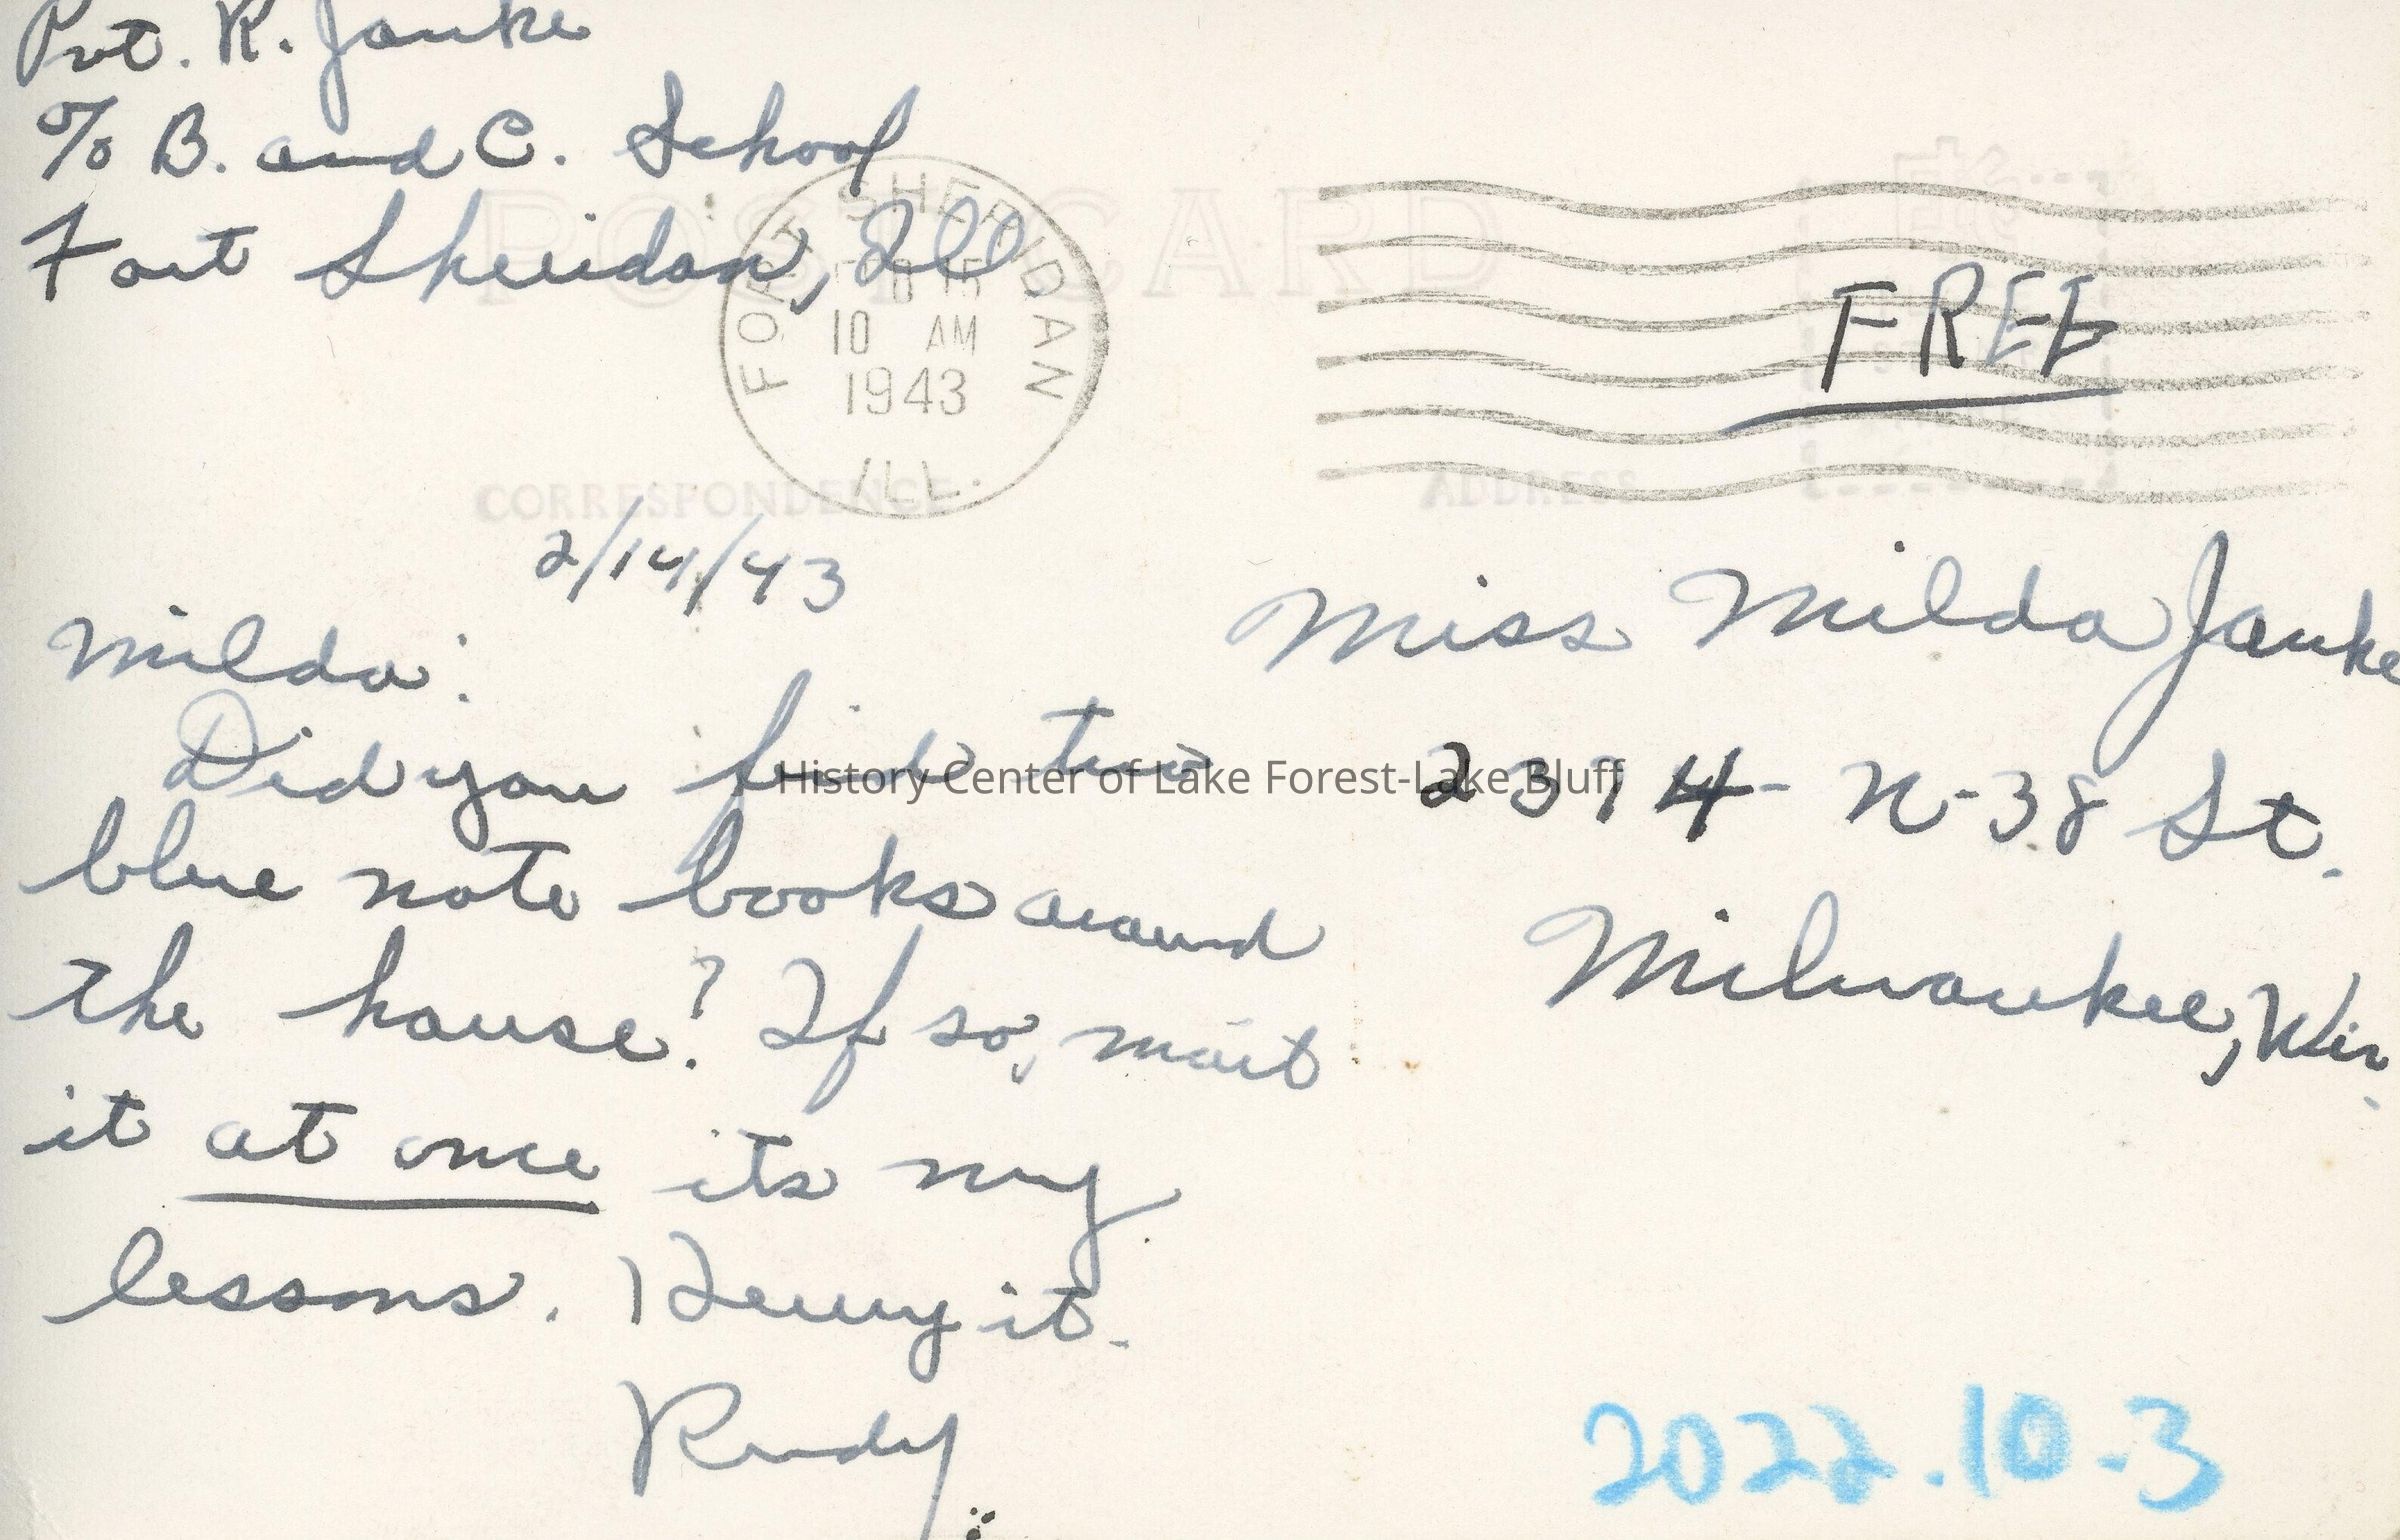 Pvt. R. Janke
c/o B. and C. School
Fort Sheridan, Ill
POST CARD
FORT SHERIDAN
FEB 15
10 AM
1943
ILL.
FREE
CORRESPONDENCE
ADDRESS
2/14/43
Milda:
Did you find two
blue note books around
the house? If so, mail
it at once its my
lessons. Hurry it.
Rudy
Miss Milda Janke
2374- N-38 St.
Milwaukee, Wis.
History Center of Lake Forest-Lake Bluff
2022.10-3